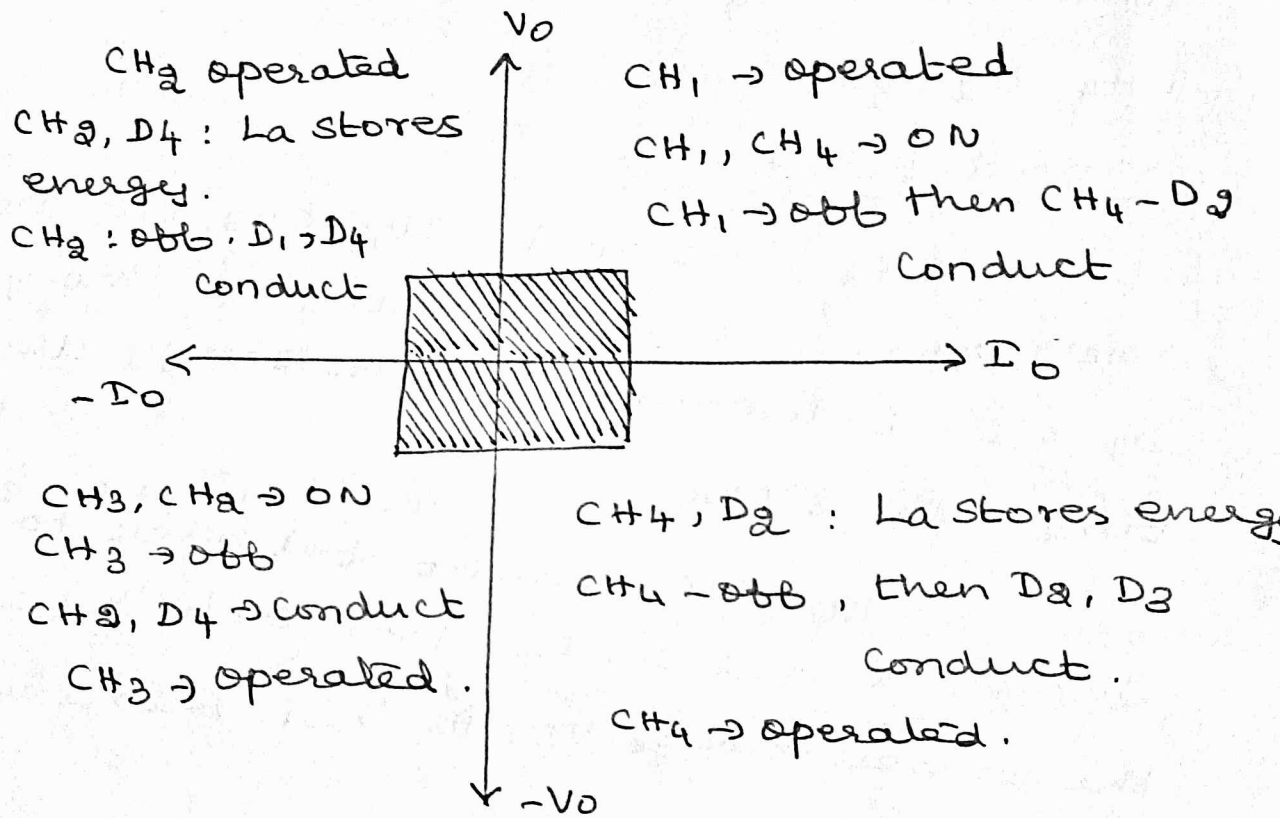 V0
CH2 operated
CH2, D4 : La stores
energy.
CH2 : off. D1, D4
conduct
CH1 → operated
CH1, CH4 → ON
CH1 → off then CH4 - D2
conduct
I0
-I0
CH3, CH2 → ON
CH3 → off
CH2, D4 → conduct
CH3 → operated.
CH4, D2 : La stores energy
CH4 - off, then D2, D3
conduct.
CH4 → operated.
-V0